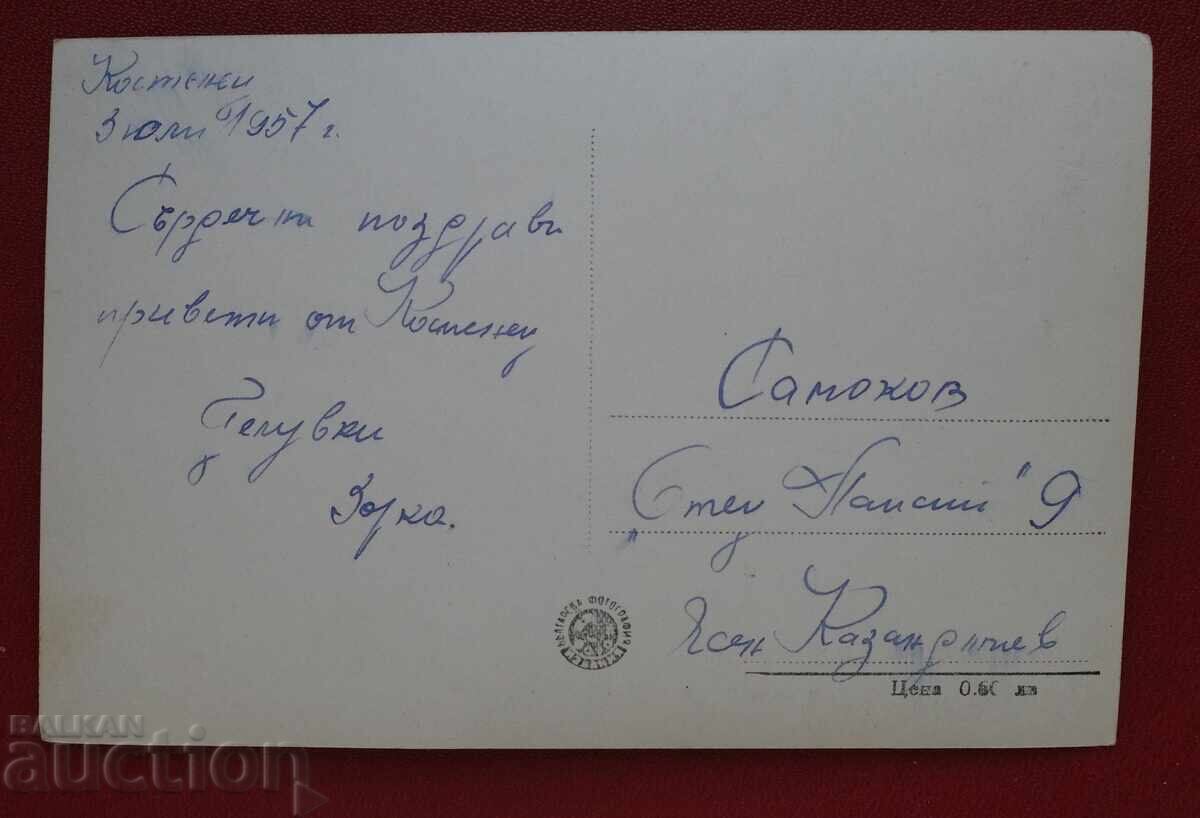 Костенец
3 юли 1957 г.
Сърдечни поздрави
привети от Костенец
Целувки
Зорка.
Самоков
"Отец Паисий" 9
Ясен Казанджиев
БЪЛГАРСКА ФОТОГРАФИЯ
Цена 0.60 лв
BALKAN
auction